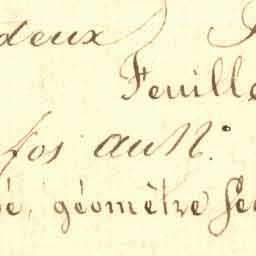 deux
Feuille
fos au N:
é, géomètre